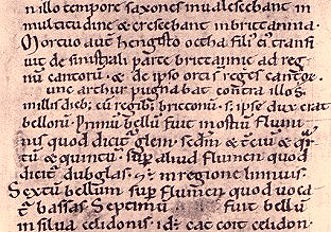 n illo tempore saxones inualescebant in
multitudine et crescebant in brittannia.
Mortuo aut̄ hengisto octha fili' ei' transi
uit de sinistrali parte brittannie ad reg
nū cantorū. & de ipso orti s̄ reges cantor̄.
Tunc arthur pugnabat contra illos.
in illis dieb; cū regib; brittonū. s; ipse dux erat
belloru. Primū bellū fuit in ostiū flumi
nis quod dicit᷑ glein. sc̄dm̄ & t̄ciū & q̄r
tū & quintū. sup̄ aliud flumen quod
dicit᷑ dubglas. & ē in regione linnuis.
Sextū bellum sup̄ flumen quod uoca
t᷑ bassas. Septimū fuit bellū
in silua celidonis. id; cat coit celidon.